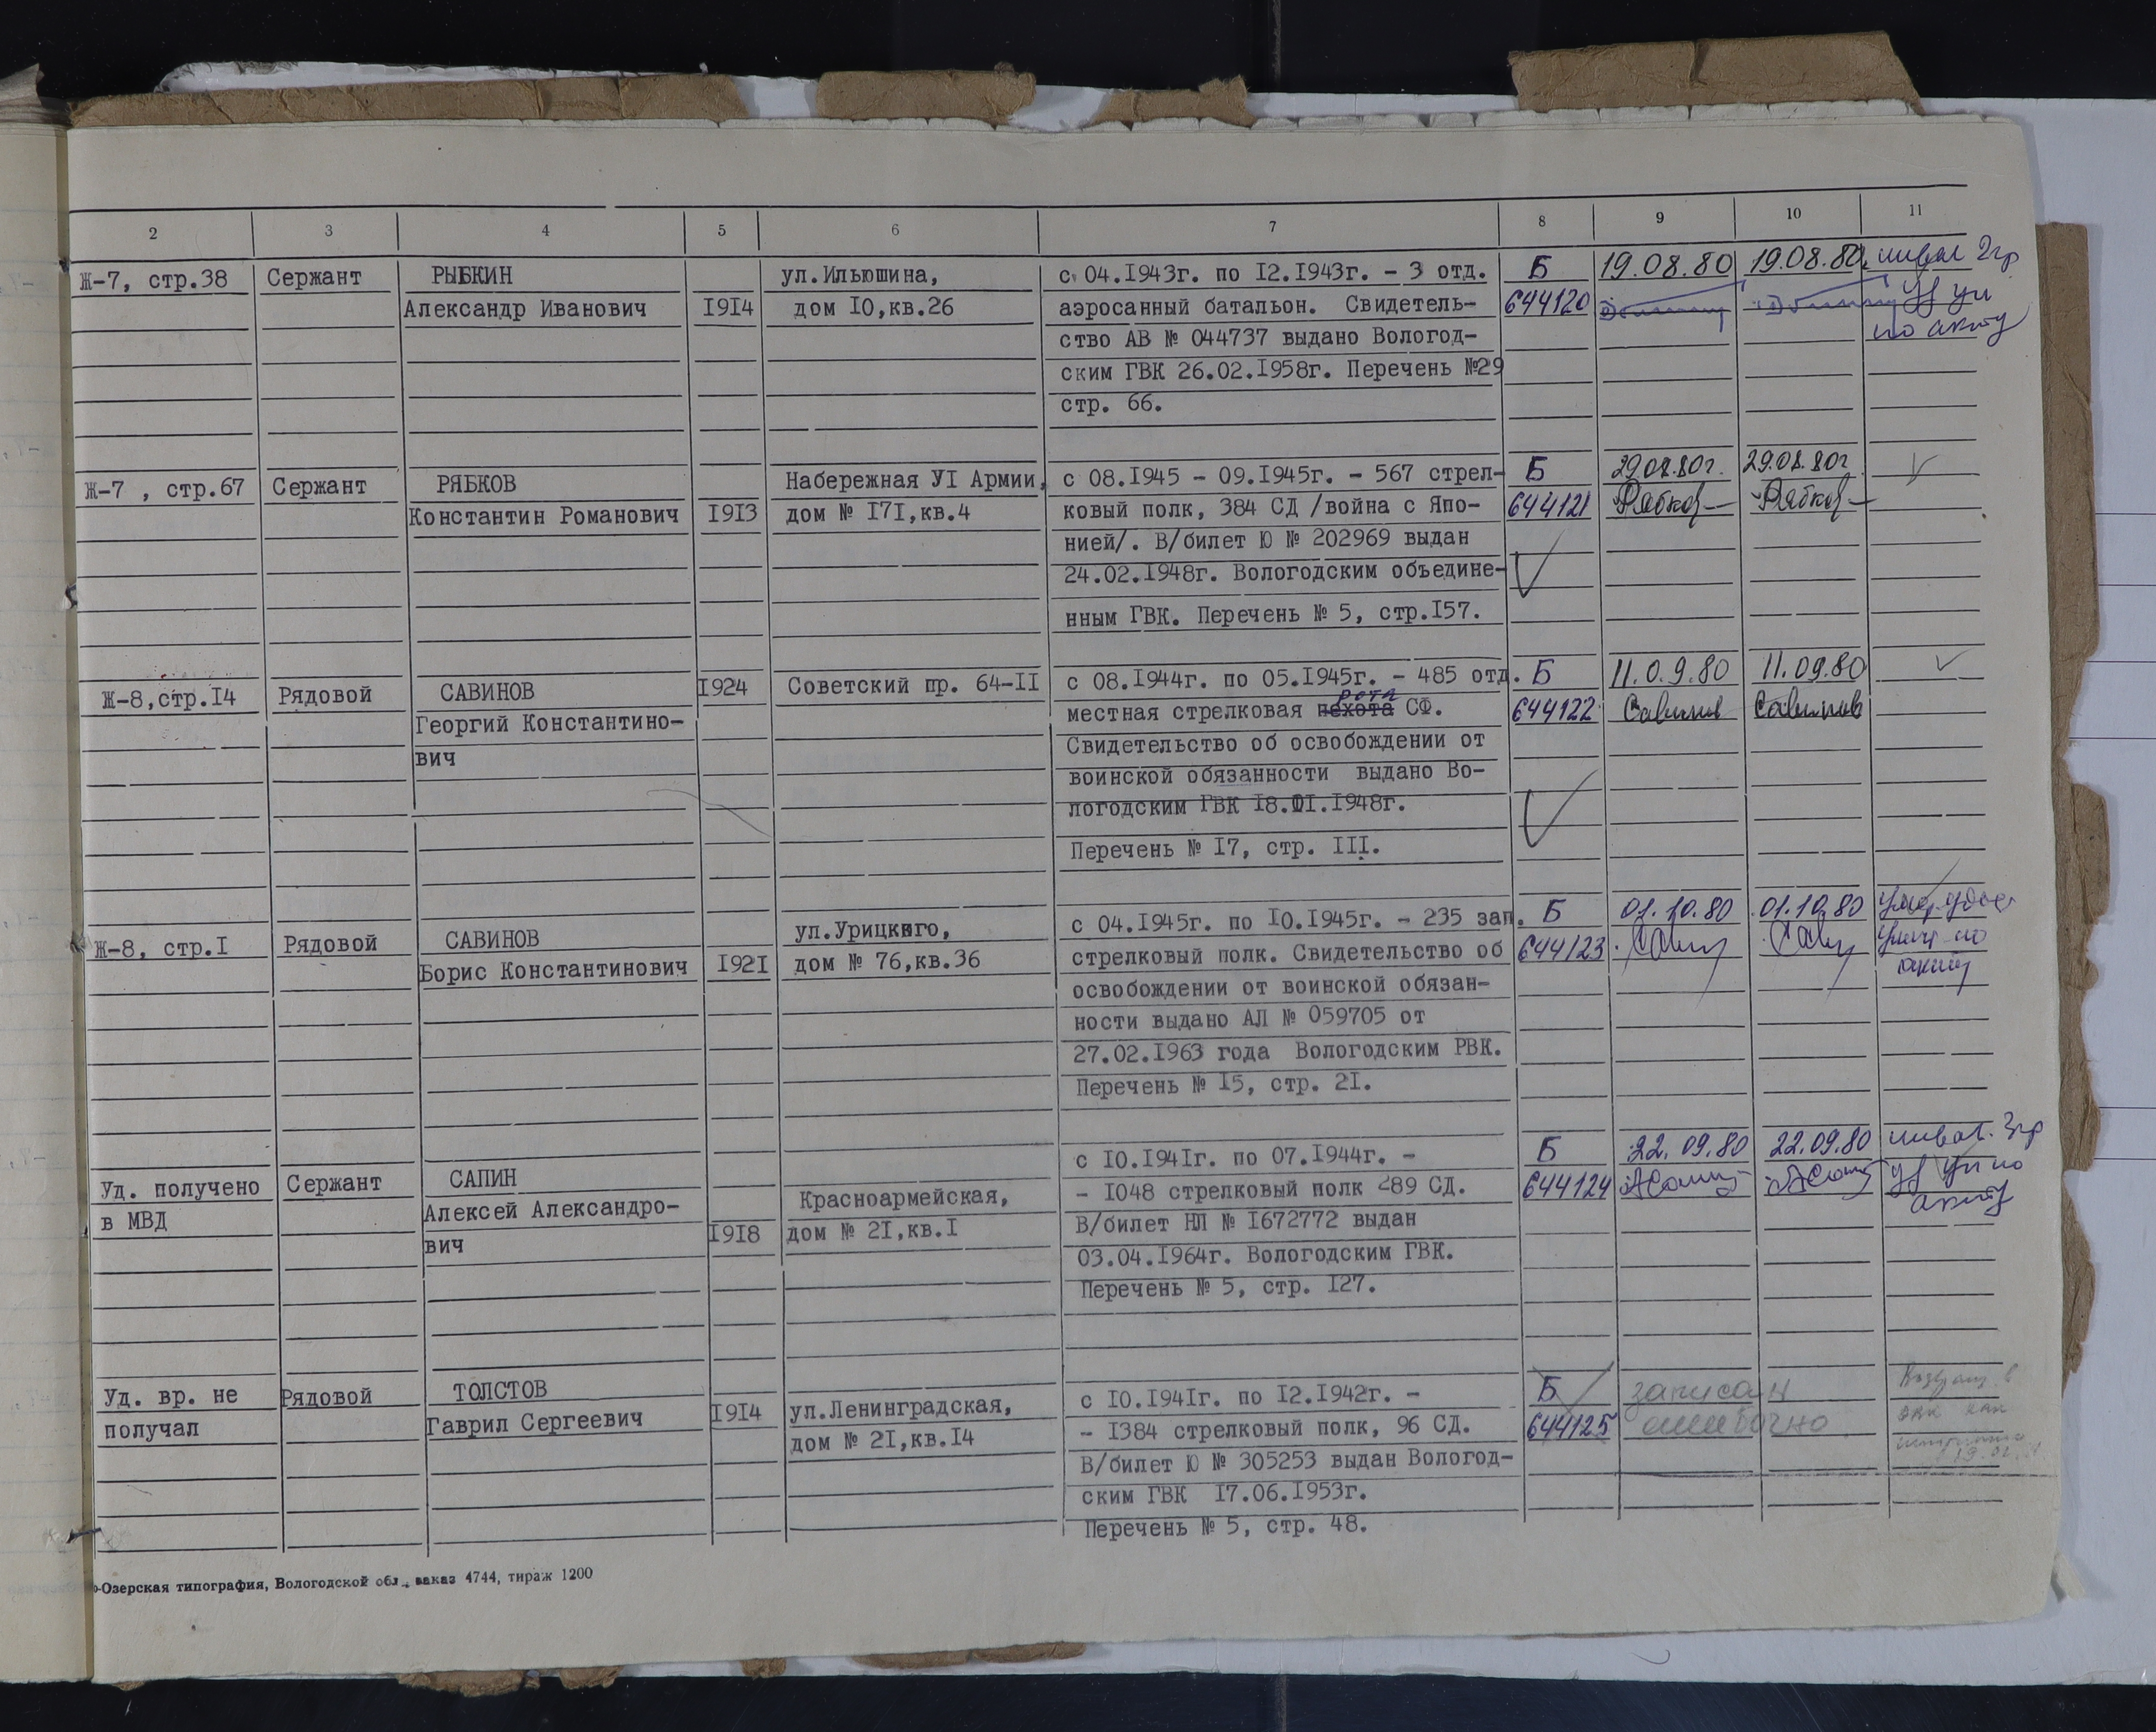 2 3 4 5 6 7 8 9 10 11
Ж-7, стр.38 Сержант РЫБКИН ул.Ильюшина, с 04.1943г. по 12.1943г. - 3 отд. Б 19.08.80 19.08.80 инвал 2гр
Александр Иванович 1914 дом 10,кв.26 аэросанный батальон. Свидетель- 644120 уд ун
ство АВ № 044737 выдано Вологод- по акту
ским ГВК 26.02.1958г. Перечень №29
стр. 66.
Ж-7 , стр.67 Сержант РЯБКОВ Набережная УI Армии, с 08.1945 - 09.1945г. - 567 стрел- Б 29.08.80г. 29.08.80г
Константин Романович 1913 дом № 171,кв.4 ковый полк, 384 СД /война с Япо- 644121 Рябков Рябков
нией/. В/билет Ю № 202969 выдан
24.02.1948г. Вологодским объедине-
нным ГВК. Перечень № 5, стр.157.
Ж-8,стр.14 Рядовой САВИНОВ 1924 Советский пр. 64-11 с 08.1944г. по 05.1945г. - 485 отд. Б 11.0.9.80 11.09.80
рота
Георгий Константино- местная стрелковая пехота СФ. 644122 Савинов Савинов
вич Свидетельство об освобождении от
воинской обязанности выдано Во-
логодским ГВК
Перечень № 17, стр. 111.
Ж-8, стр.1 Рядовой САВИНОВ ул.Урицкого, с 04.1945г. по 10.1945г. - 235 зап. Б 01.10.80 01.10.80 умер удост
Борис Константинович 1921 дом № 76,кв.36 стрелковый полк. Свидетельство об 644123 по
освобождении от воинской обязан- акту
ности выдано АЛ № 059705 от
27.02.1963 года Вологодским РВК.
Перечень № 15, стр. 21.
Уд. получено Сержант САПИН с 10.1941г. по 07.1944г. - Б 22.09.80 22.09.80 инвал. 3гр
в МВД Алексей Александро- Красноармейская, - 1048 стрелковый полк 289 СД. 644124 уд ун по
вич 1918 дом № 21,кв.1 В/билет НЛ № 1672772 выдан акту
03.04.1964г. Вологодским ГВК.
Перечень № 5, стр. 127.
Уд. вр. не Рядовой ТОЛСТОВ с 10.1941г. по 12.1942г. - Б записан
получал Гаврил Сергеевич 1914 ул.Ленинградская, - 1384 стрелковый полк, 96 СД. 644125 ошибочно
дом № 21,кв.14 В/билет Ю № 305253 выдан Вологод-
ским ГВК 17.06.1953г.
Перечень № 5, стр. 48.
-Озерская типография, Вологодской обл., заказ 4744, тираж 1200